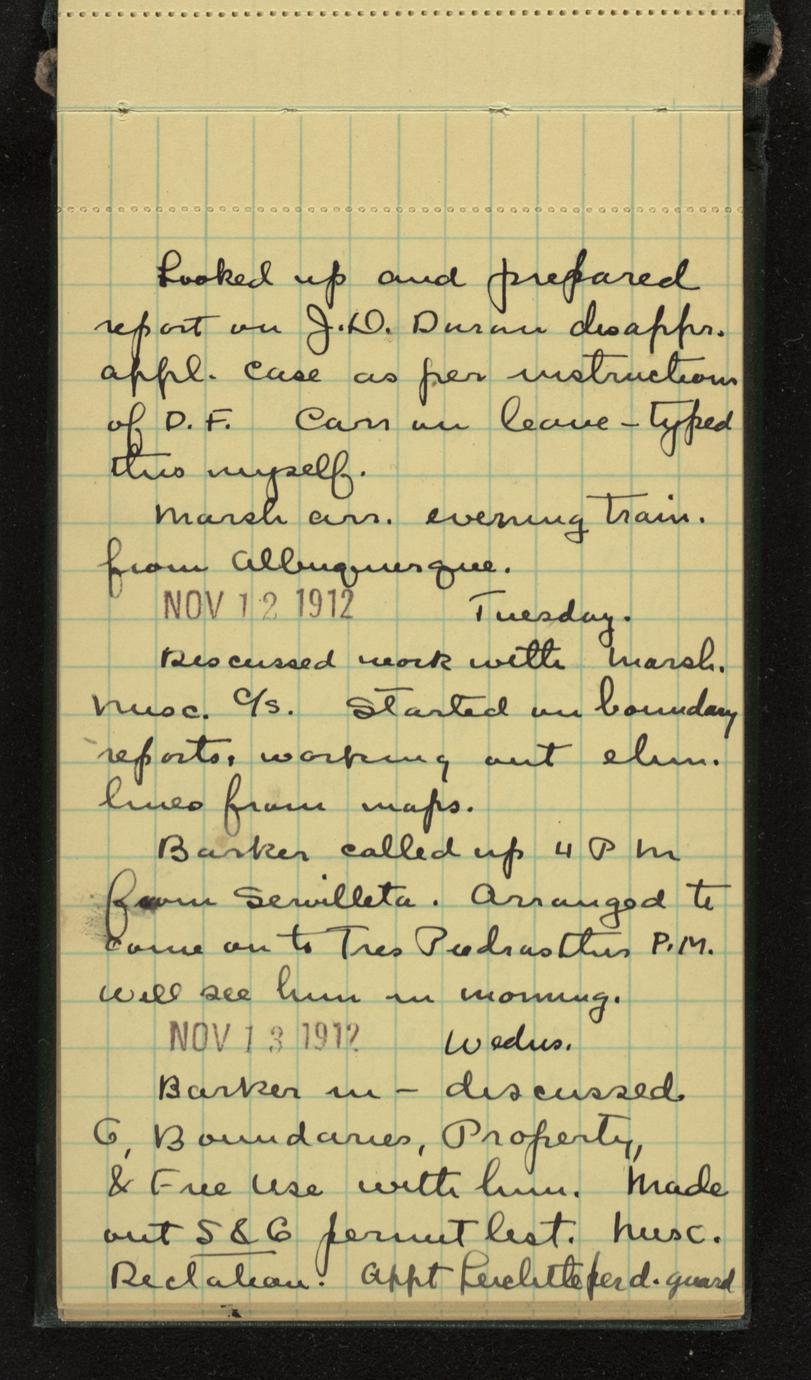 Looked up and prepared
report on J.D. Duran disappr.
appl. case as per instructions
of D.F. Carr on leave - typed
this myself.
Marsh arr. evening train.
from Albuquerque.
NOV 12 1912 Tuesday.
Discussed work with Marsh.
Misc. c/s. Started on boundary
reports, working out elim.
lines from maps.
Barker called up 4 PM
from Servilleta. Arranged to
come on to Tres Piedras this P.M.
will see him in morning.
NOV 13 1912 Wednes.
Barker in - discussed
G, Boundaries, Property,
& Free Use with him. Made
out S & G permit list. Misc.
Dictation. Appt guard